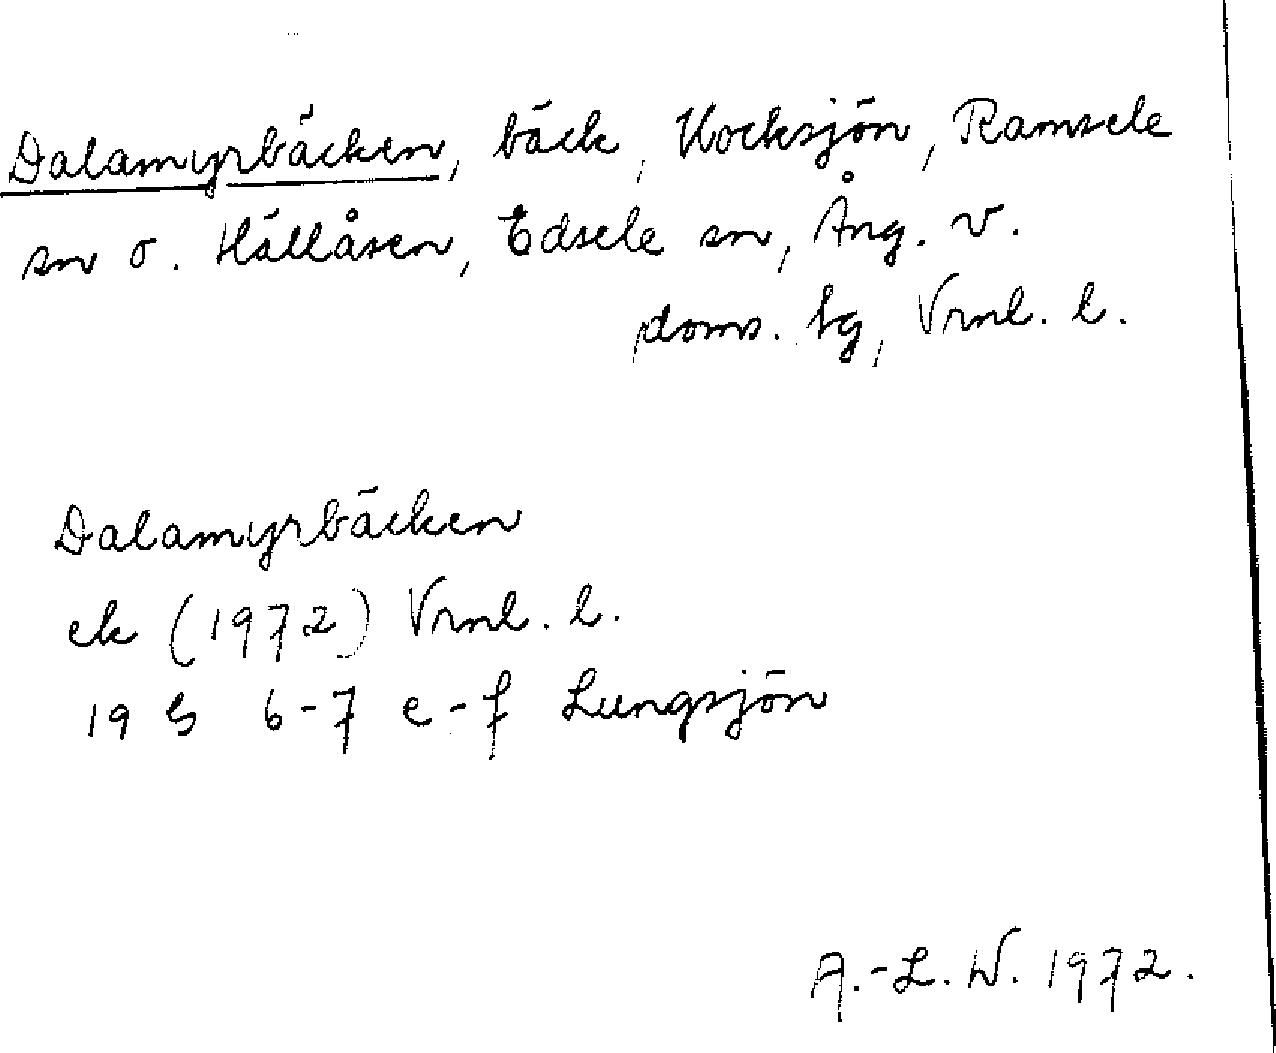 Dalamyrbäcken, bäck, Kocksjön, Ramsele
sn o. Hällåsen, Edsele sn, Ång. v.
doms. tg, Vrnl. l.
Dalamyrbäcken
ek (1972) Vrnl. l.
19 G 6-7 e-f Lungsjön
A.-L. W. 1972.